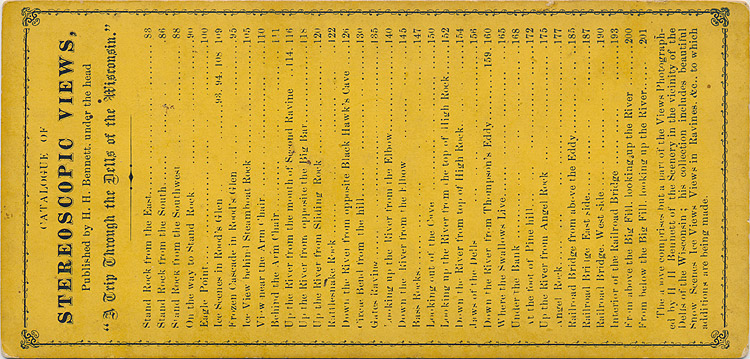 CATALOGUE OF
STEREOSCOPIC VIEWS,
Published by H. H. Bennett, under the head
"A Trip Through the Dells of the Wisconsin."
Stand Rock from the East 83
Stand Rock from the South 86
Stand Rock from the Southwest 88
On the way to Stand Rock 90
Eagle Point 100
Ice Scenes in Rood's Glen 93, 94, 108, 109
Frozen Cascade in Rood's Glen 95
Ice View behind Steamboat Rock 105
View near the Arm Chair 110
Behind the Arm Chair 111
Up the River from the mouth of Second Ravine 114, 116
Up the River from opposite the Big Bar 118
Up the River from Sliding Rock 120
Rattlesnake Rock 122
Down the River from opposite Black Hawk's Cave 126
Circle Bend from the hill 130
Gates Ravine 135
Looking up the River from the Elbow 140
Down the River from the Elbow 145
Bass Rocks 147
Looking out of the Cove 150
Looking up the River from the top of High Rock 152
Down the River from top of High Rock 154
Jaws of the Dells 156
Down the River from Thompson's Eddy 159, 160
Where the Swallows Live 165
Under the Bank 168
At the foot of Pine hill 172
Up the River from Angel Rock 175
Angel Rock 177
Railroad Bridge from above the Eddy 185
Railroad Bridge East side 187
Railroad Bridge, West side 190
Interior of the Railroad Bridge 193
From above the Big Fill, looking up the River 200
From below the Big Fill, looking up the River 201
The above comprises but a part of the Views Photograph-
ed by H. H. Bennett of the Scenery in the vicinity of the
Dells of the Wisconsin; his collection includes beautiful
Snow Scenes Ice Views Views in Ravines, &c., to which
additions are being made.